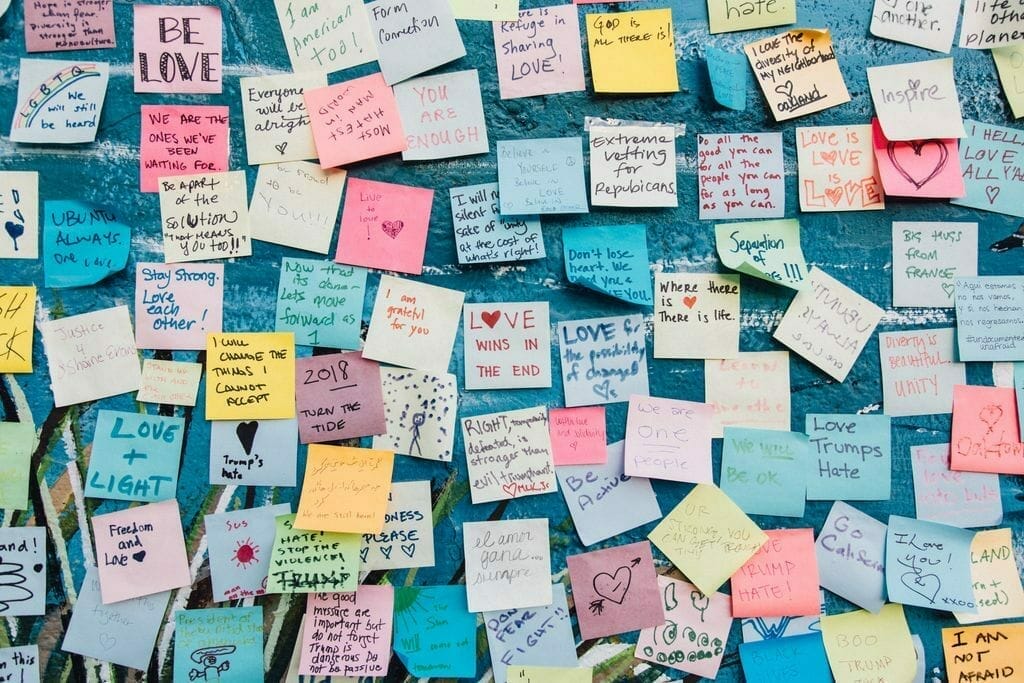 Hope is stronger
than fear.
Diversity is
stronger than
monoculture.
BE
LOVE
I am
American
too!
Form
Connection
Refuge in
Sharing
LOVE!
GOD is
ALL THERE is!
hate.
I LOVE THE
diversity OF
MY NEIGHBORHOOD
oakland
one
another.
life on
other
planets
LGBTQ
We
will still
be heard
WE ARE THE
ONES WE'VE
BEEN
WAITING FOR.
Everyone
will be
alright
YOU
ARE
ENOUGH
Believe in
YOURSELF
Believe in
LOVE
Extreme
vetting
for
Repubicans.
Do all the
good you can
for all the
people you can
for as long
as you can.
LOVE is
LOVE
is
LOVE
Inspire
I HELLA
LOVE
ALL YA
UBUNTU
ALWAYS.
One Love.
Be Apart
of the
SoLUTION
"That MEANS
You TOO!!"
be proud
to be
YOU!!!
Live
to
love!
I will no
silent
saks of "unity"
at the cost of
what's right!
Don't lose
heart. We
need you a
YOU.
Separation
of
!!!
BIG HUGS
FROM
FRANCE
Stay Strong.
Love
each
other!
Now that
its done-
Lets move
forward as
1
I am
grateful
for you
LOVE
WINS IN
THE END
LOVE &
the possibility
of change!
WHERE THERE
is
THERE is LIFE.
UBUNTU
ALWAYS
ONE LOVE
Diverty is
Beautiful.
UNITY
Aquí estamos
no nos vamos,
y si nos hechan
nos regresamos
#undocumented
unafraid
Justice
4
I WILL
CHANGE THE
THINGS I
CANNOT
ACCEPT
2018
TURN THE
TIDE
LOVE
+
LIGHT
Trump's
hate
RIGHT temporarily
defeated, is
stronger than
evil triumphant.
MLK Jr
We are
one
people
Learn
to
We will
Be OK
Love
Trumps
Hate
We are still here!
Be
Active
Freedom
and
Love
SUS
HATE!
STOP THE
VIOLENCE!
PLEASE
el amor
gana...
siempre
OR
STRONG, YOU
CAN GET THROUGH
THIS!
LOVE
TRUMP
HATE!
Go
Califor
I Love
you!
xxoo
LAND
together
President of
The good
message are
important but
do not forget
Trump is
dangerous Do
not be passive
The
Sun
Will come out
tomorrow
DON'T
FEAR
FIGHT!!
BOO
TRUMP
I AM
NOT
AFRAID